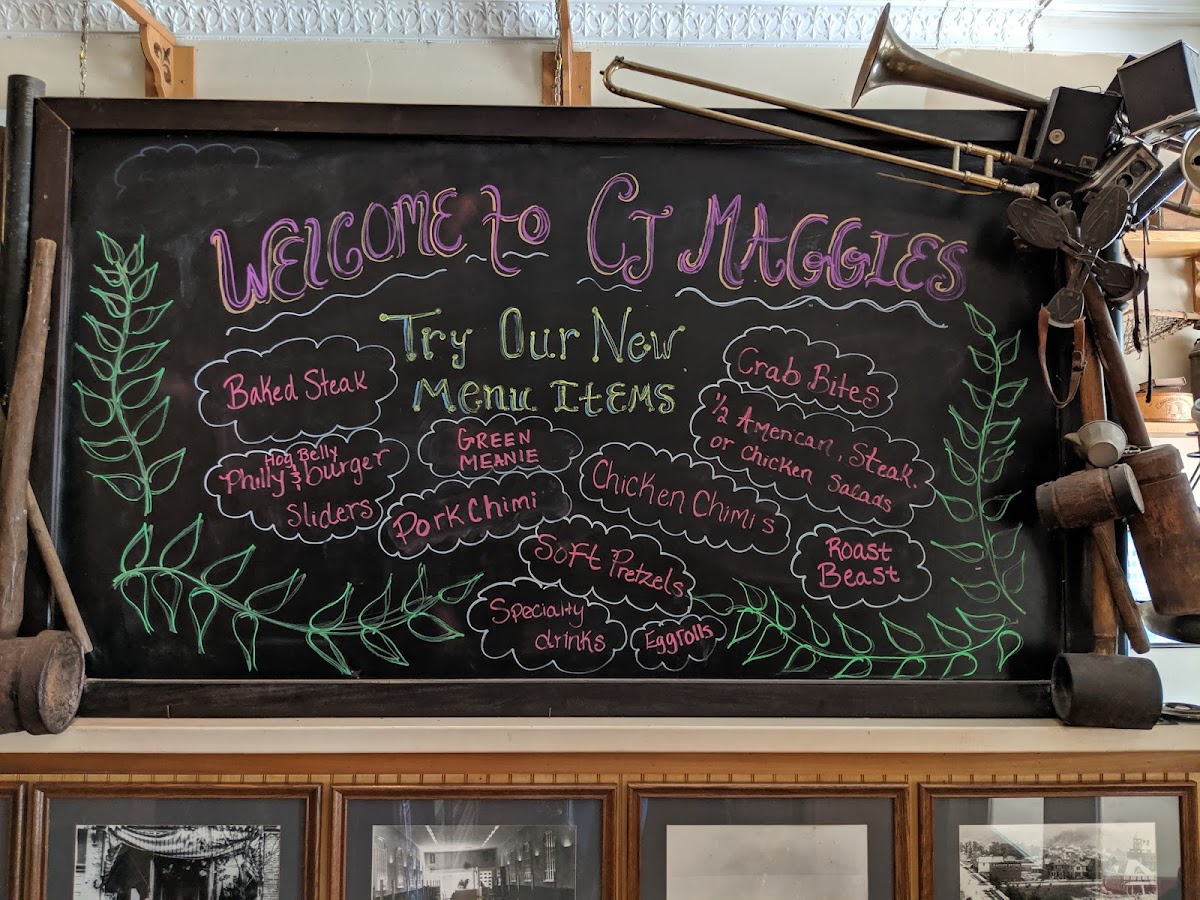 WELCOME to CJ MAGGIES
Try Our New
Menu Items
Baked Steak
Hog Belly
Philly & burger
Sliders
GREEN
MEANIE
Pork Chimi
Crab Bites
1/2 American, Steak.
or chicken Salads
Chicken Chimis
Soft Pretzels
Roast
Beast
Specialty
drinks
Eggrolls